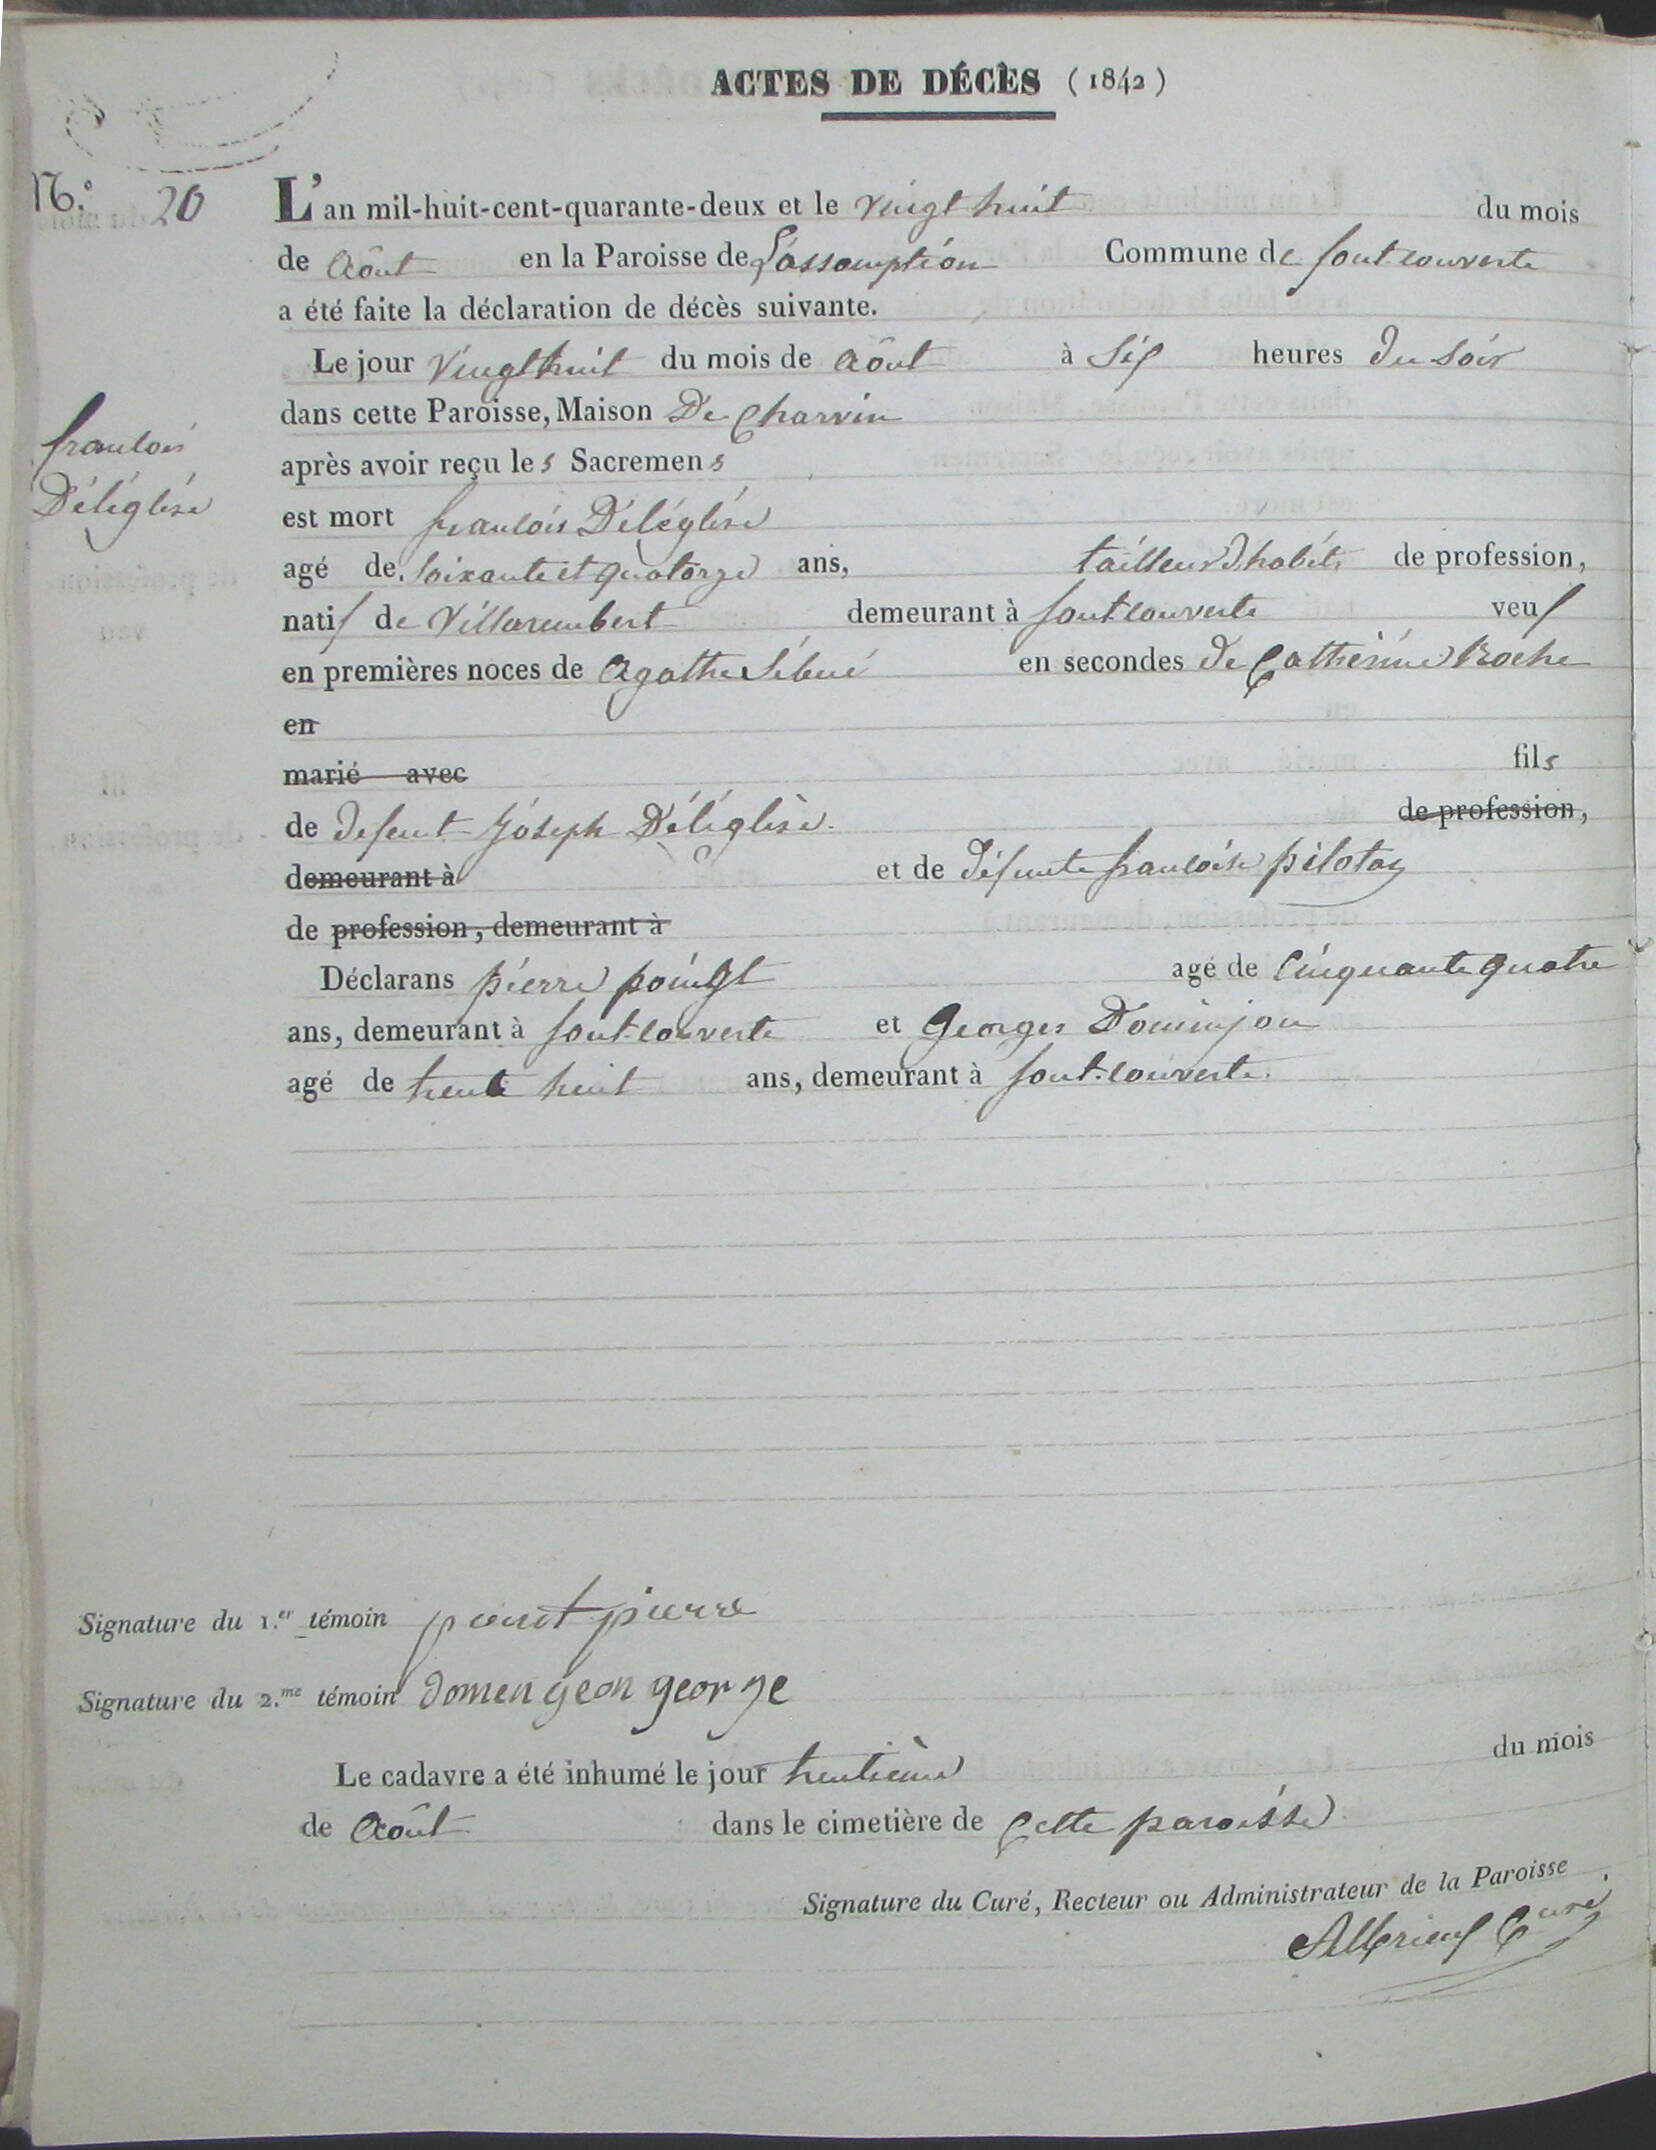 ACTES DE DÉCÈS (1842)
N.° 20
L'an mil-huit-cent-quarante-deux et le vingt huit du mois
de Aôut en la Paroisse de L'assomption Commune de font-couverte
a été faite la déclaration de décès suivante.
Le jour vingt huit du mois de Aôut à Six heures du Soir
dans cette Paroisse, Maison De Charvin
après avoir reçu les Sacremens
francois
Déléglise
est mort francois Déléglise
agé de Soixante et quatorze ans, tailleur d'habits de profession,
natif de Villarembert demeurant à font-couverte veuf
en premières noces de Agathe Sibué en secondes de Catherine Roche
en
marié avec fils
de defunt Joseph Déléglise. de profession,
demeurant à et de défunte francoise pilotaz
de profession, demeurant à
Déclarans pierre poingt agé de Cinquante quatre
ans, demeurant à font-couverte et Georges Dominjon
agé de trente huit ans, demeurant à font-couverte.
Signature du 1.er témoin pierre
Signature du 2.me témoin domengeon george
Le cadavre a été inhumé le jour trentième du mois
de Aôut dans le cimetière de Cette paroisse
Signature du Curé, Recteur ou Administrateur de la Paroisse
Curé